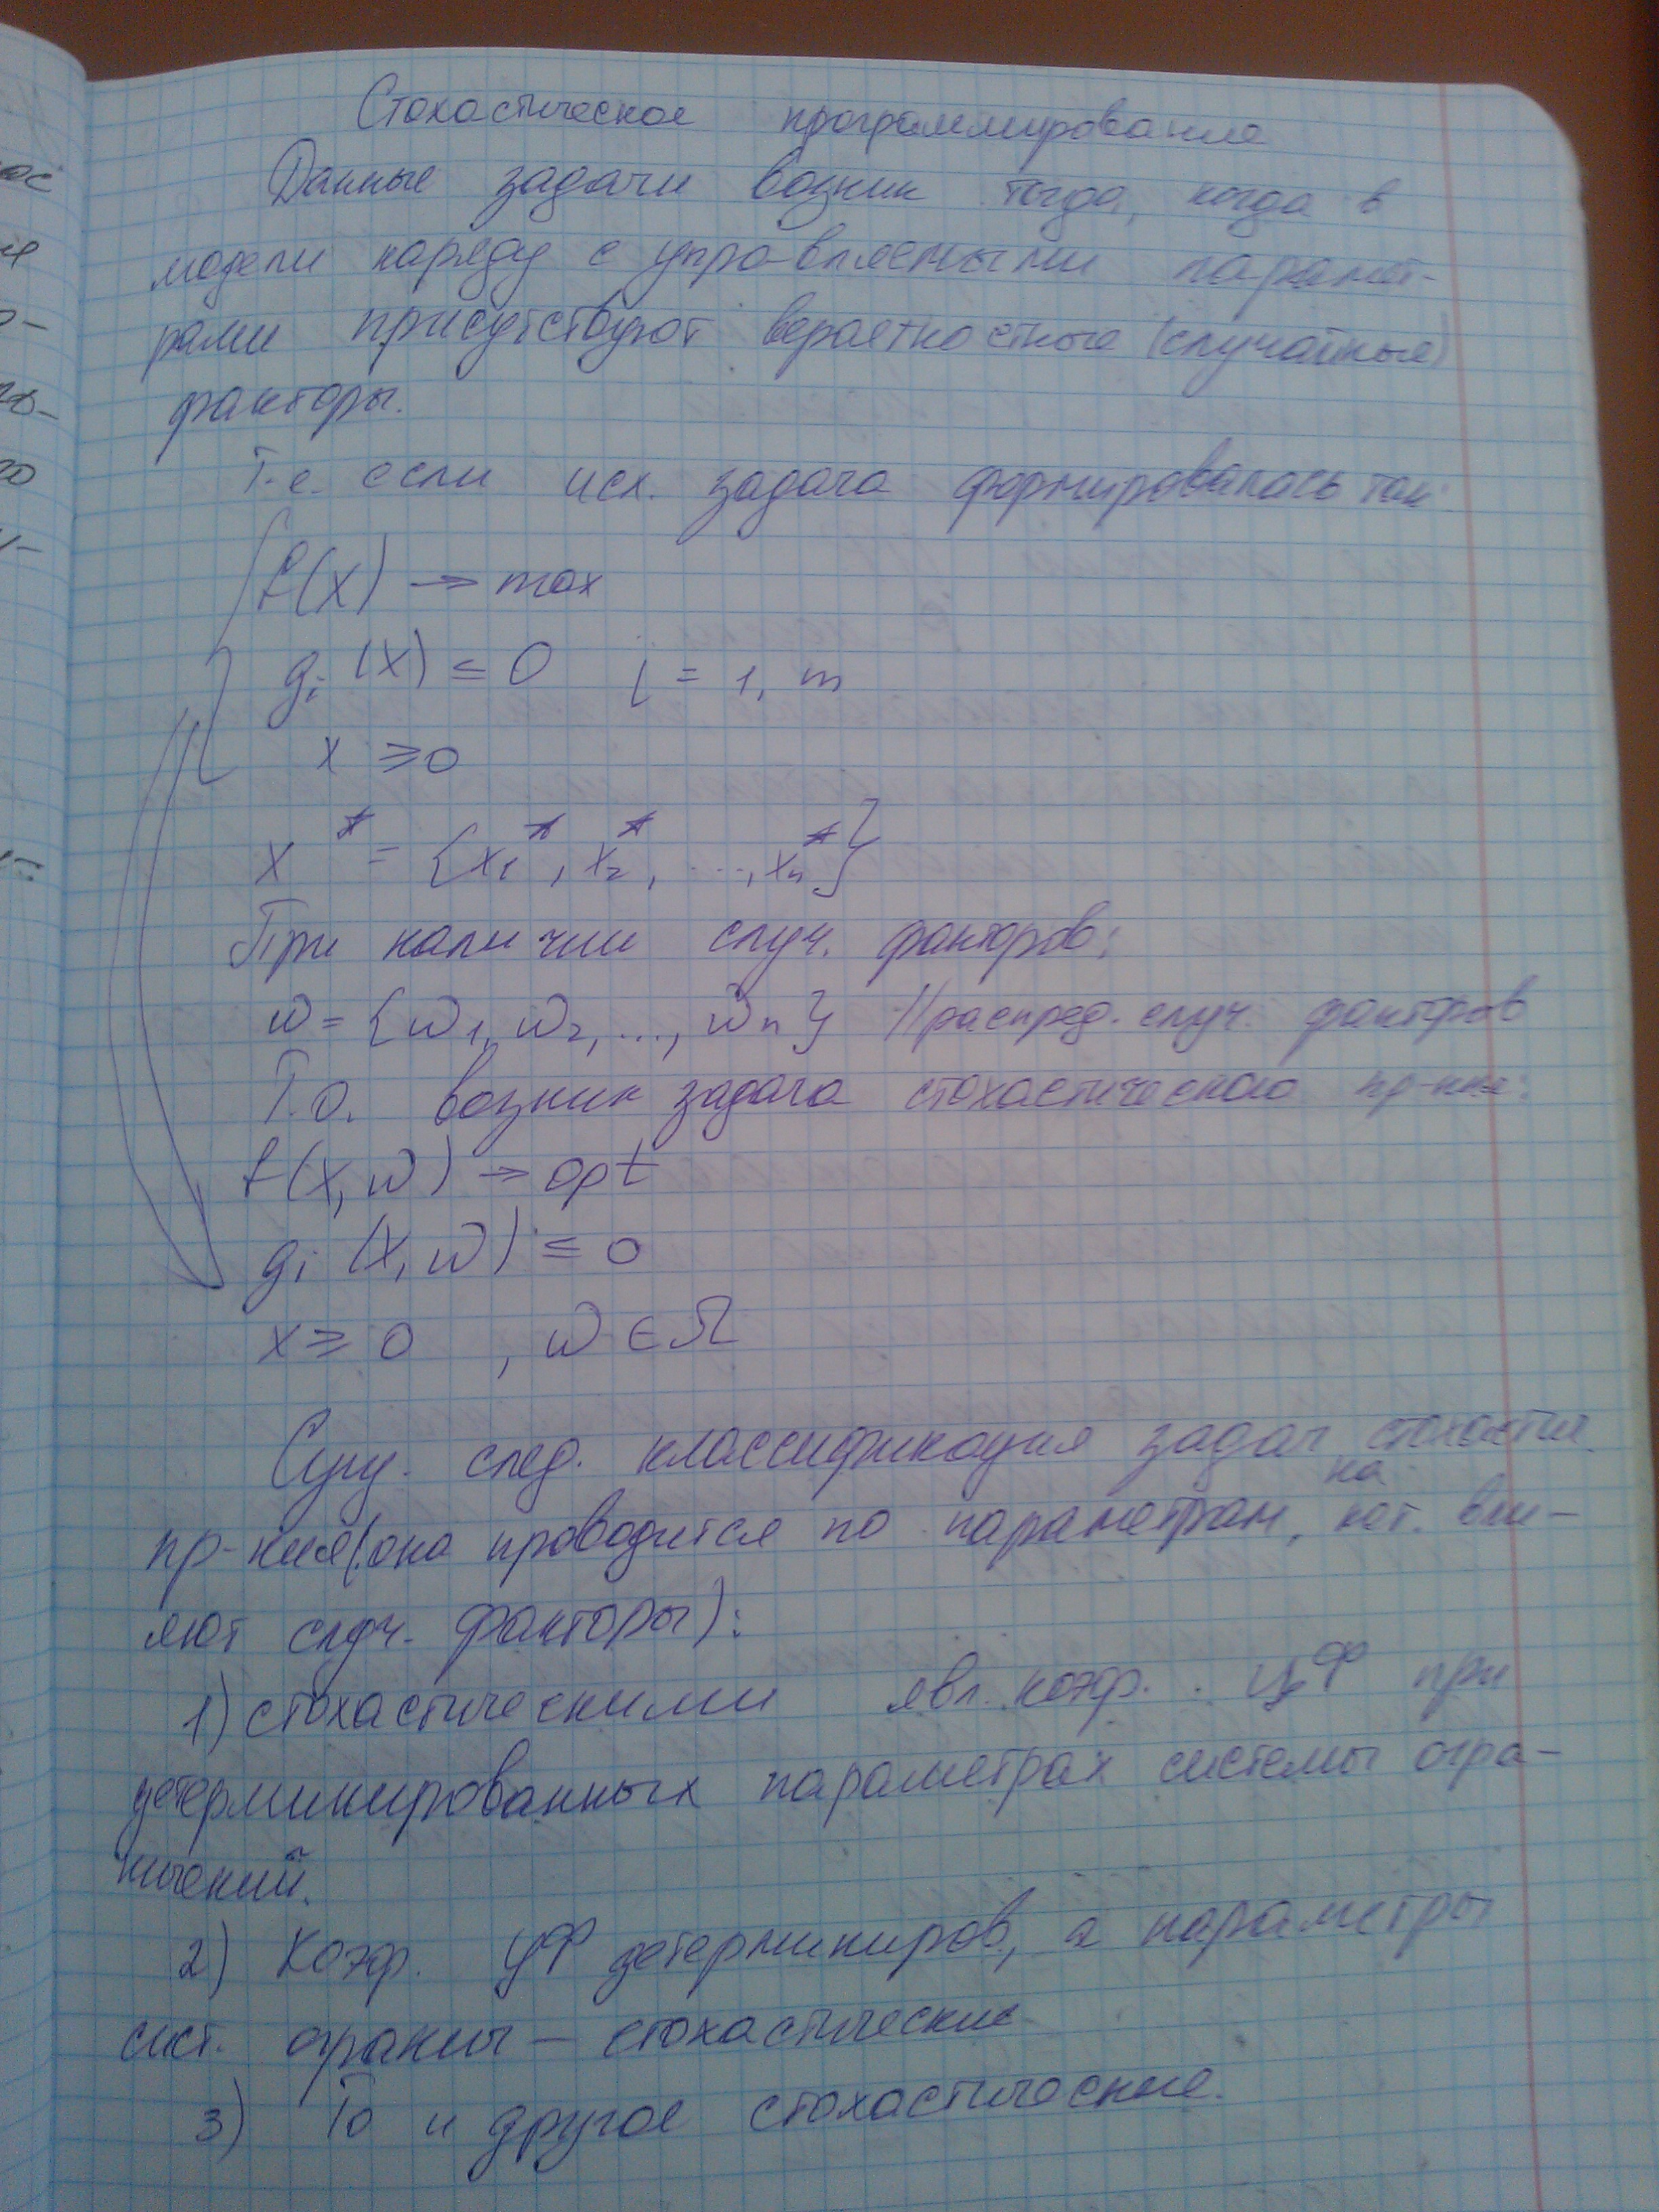 Стохастическое программирование
Данные задачи возник тогда, когда в
модели наряду с управляемыми парамет-
рами присутствуют вероятностные (случайные)
факторы.
Т.е. если исх. задача формировалась так:
f(x) → max
gi (x) ≤ 0 i = 1, m
x ≥ 0
x* = {x1*, x2*, ..., xn*}
При наличии случ. факторов:
w = {w1, w2, ..., wn} // распред. случ. факторов
Т.о. возник задача стохастического пр-ния:
f(x, w) → opt
gi (x, w) ≤ 0
x ≥ 0 , w ∈ Ω
Сущ. след. классификация задач стохастич.
пр-ния (она проводится по параметрам, на кот. вли-
яют случ. факторы):
1) стохастическими явл. коэф. ЦФ при
детерминированных параметрах системы огра-
ничений.
2) Коэф. ЦФ детерминиров, а параметры
сист. огранич — стохастические
3) То и другое стохастические.